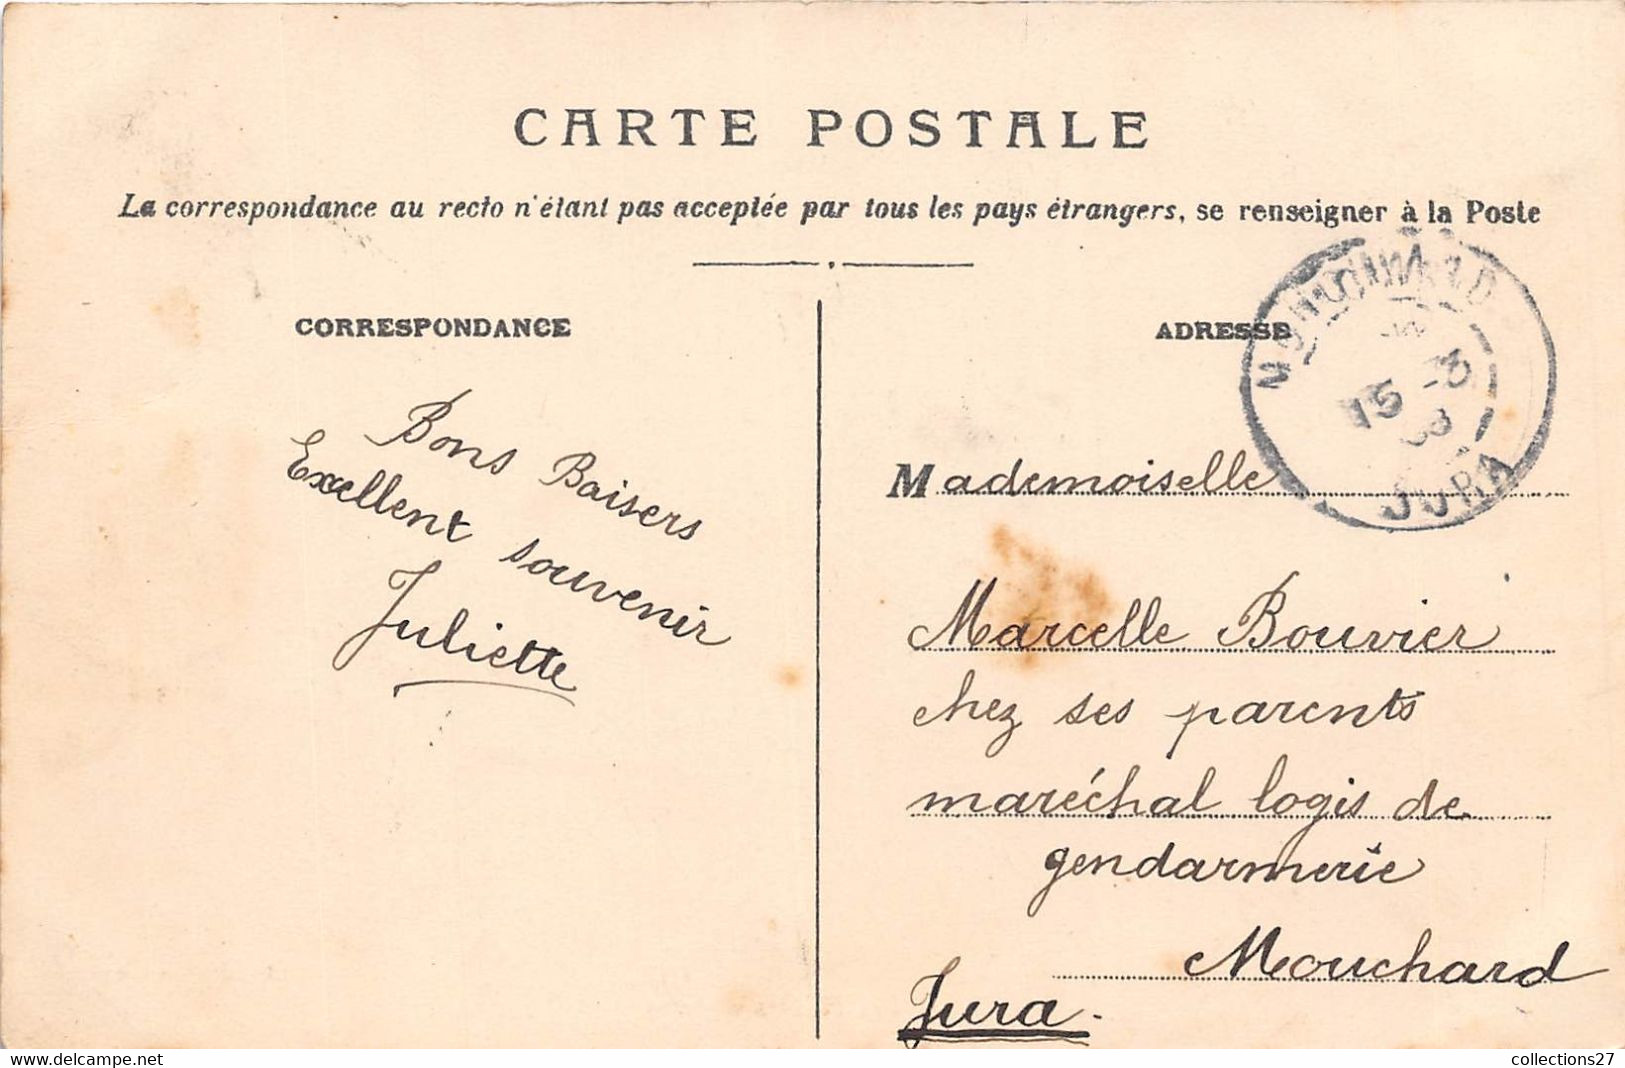 CARTE POSTALE
La correspondance au recto n'étant pas acceptée par tous les pays étrangers, se renseigner à la Poste
CORRESPONDANCE
Bons Baisers
Exellent souvenir
Juliette
ADRESSE
MOUCHARD
15 -3
8
JURA
Mademoiselle
Marcelle Bouvier
chez ses parents
maréchal logis de
gendarmerie
Mouchard
Jura.
collections27